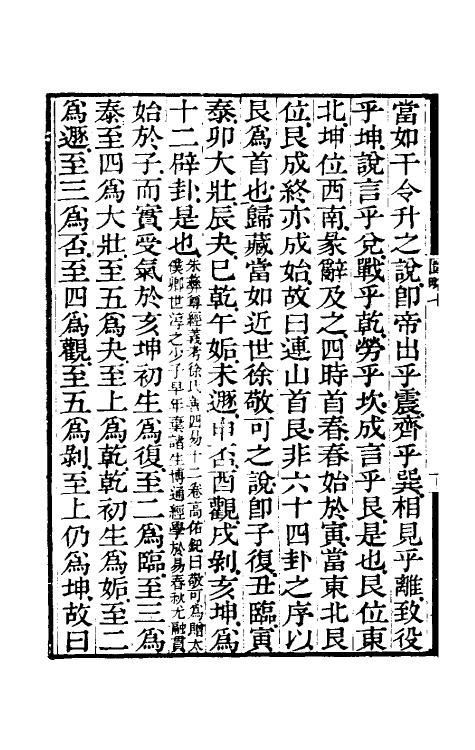 當如干令升之說卽帝出乎震齊乎巽相見乎離致役
乎坤說言乎兌戰乎乾勞乎坎成言乎艮是也艮位東
北坤位西南彖辭及之四時首春春始於寅當東北艮
位艮成終亦成始故曰連山首艮非六十四卦之序以
艮爲首也歸藏當如近世徐敬可之說卽子復丑臨寅
泰卯大壯辰夬巳乾午姤未遯申否酉觀戌剝亥坤爲
十二辟卦是也朱彝尊經義考徐氏善四易十二卷高佑釲曰敬可爲贈太
僕卿世淳之少子早年棄諸生博通經學於易春秋尤融貫
始於子而實受氣於亥坤初生爲復至二爲臨至三爲
泰至四爲大壯至五爲夬至上爲乾乾初生爲姤至二
爲遯至三爲否至四爲觀至五爲剝至上仍爲坤故曰